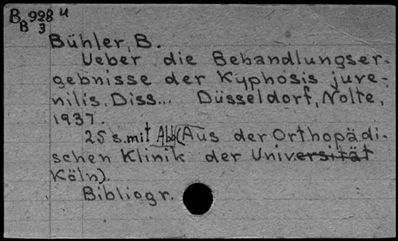 B 928 u
B 3
Bühler, B.
Ueber die Behandlungser-
gebnisse der Kyphosis juve-
nilis. Diss... Düsseldorf, Nolte,
1937.
25 s. mit Abb (Aus der Orthopädi-
schen Klinik der Universität
Köln).
Bibliogr.